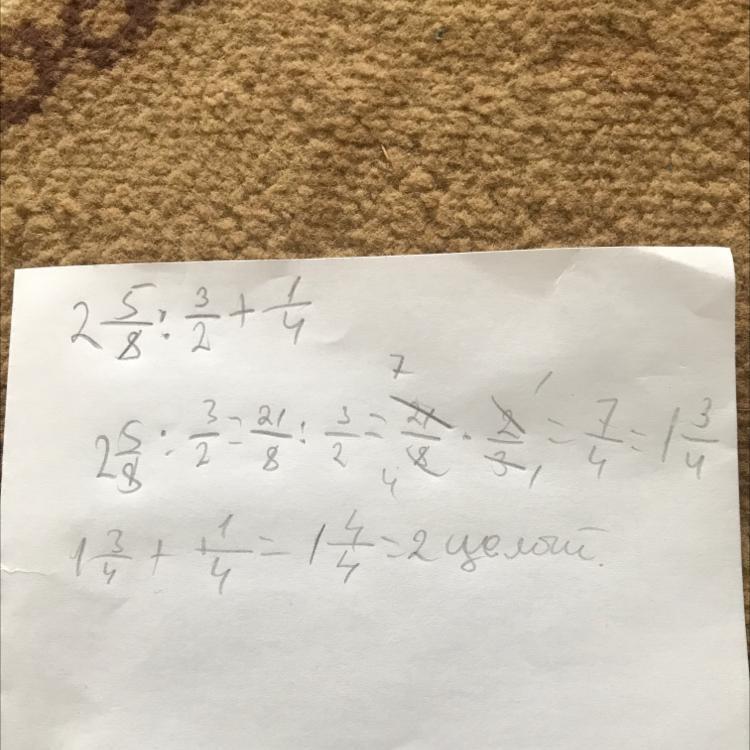 2 5/8 : 3/2 + 1/4
2 5/8 : 3/2 = 21/8 : 3/2 = 21/8 · 2/3 = 7/4 = 1 3/4
1 3/4 + 1/4 = 1 4/4 = 2 целой.